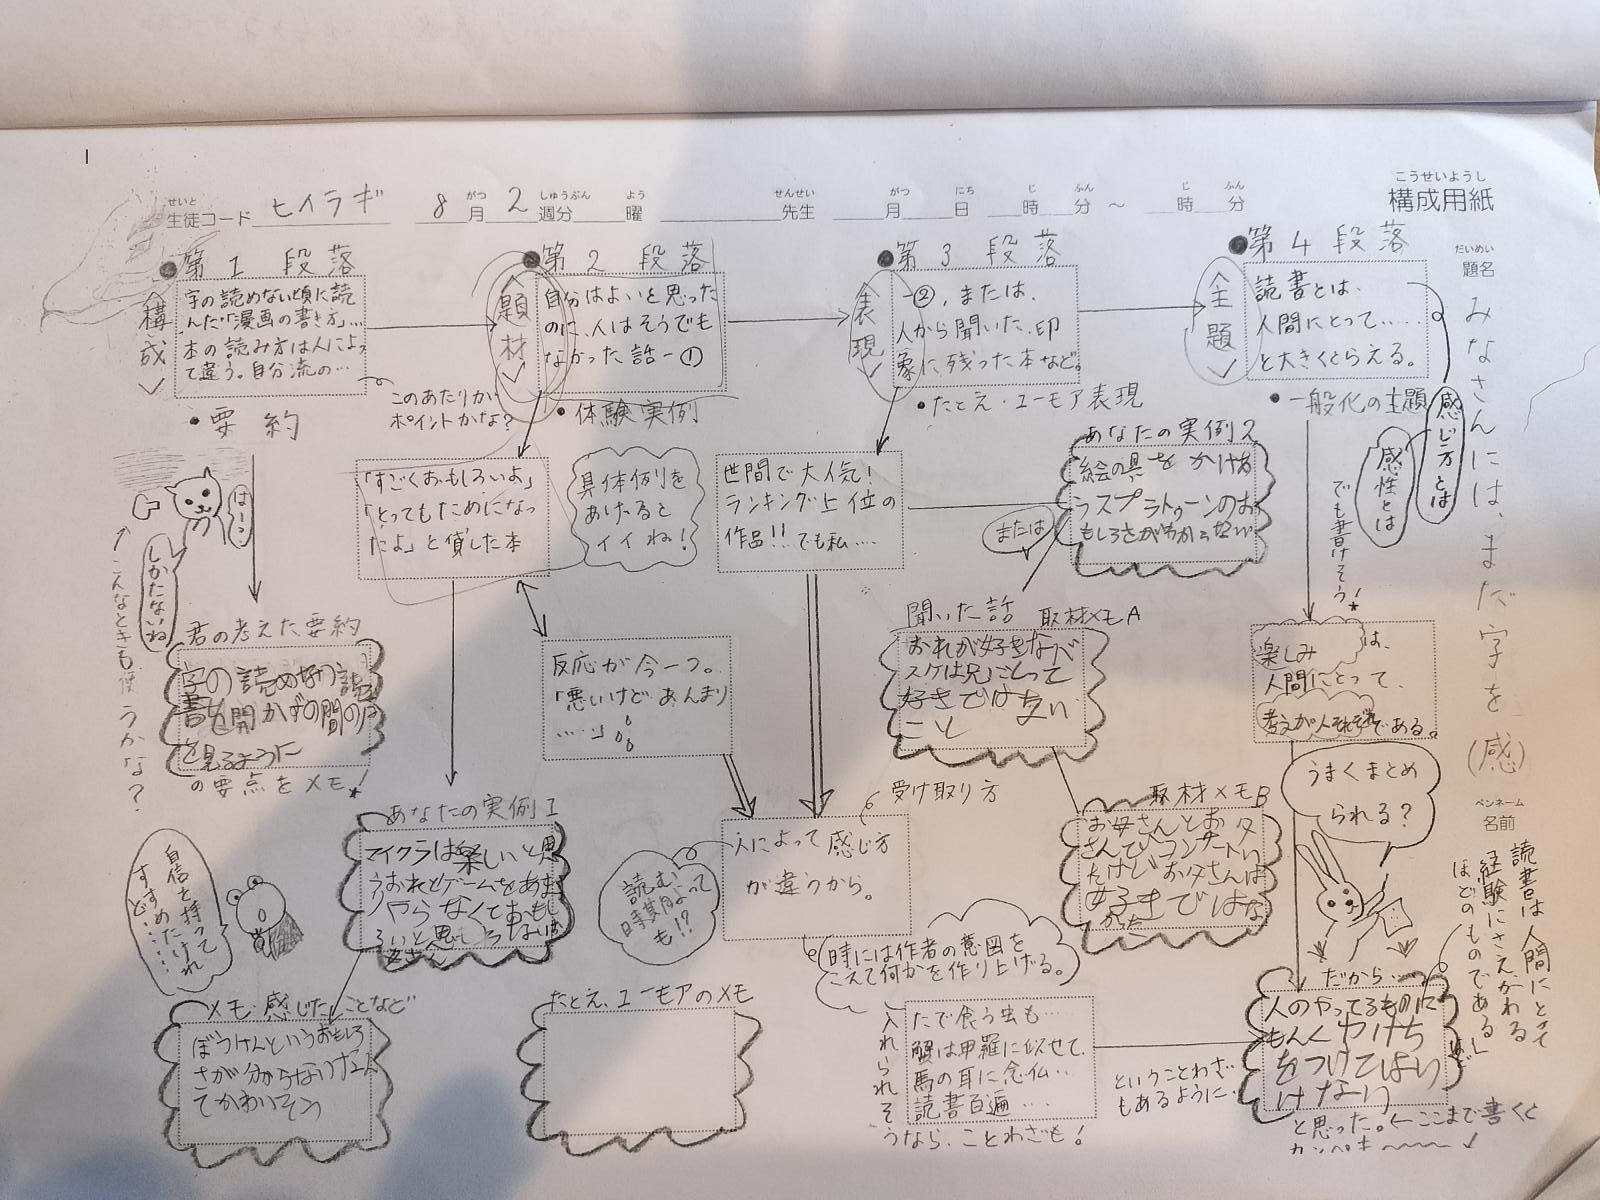 こうせいようし
構成用紙
せいと
生徒コード ヒイラギ
がつ しゅうぶん よう
8月 2週分 曜
せんせい
先生
がつ にち じ ふん じ ふん
月 日 時 分 ～ 時 分
だいめい
題名
みなさんには、まだ字を(感)
ペンネーム
名前
●第1段落
構成
字の読めない頃に読
んだ「漫画の書き方」…
本の読み方は人によっ
て違う。自分流の…
このあたりが
ポイントかな?
・要約
はーン
しかたないね
こんなときも使うかな?
君の考えた要約
字の読めない
の要点をメモ!
自信を持って
すすめたけれ
ど……
メモ・感じたことなど
ぼうけんというおもしろ
さが分からないなん
てかわいそう
●第2段落
題材
自分はよいと思った
のに、人はそうでも
なかった話ー①
・体験実例
「すごくおもしろいよ」
「とってもためになっ
たよ」と貸した本
具体例を
あげると
イイね!
反応が今一つ。
「悪いけどあんまり
……」
あなたの実例1
マイクラは楽しいと思
たとえ、ユーモアのメモ
●第3段落
表現
ー②、または、
人から聞いた、印
象に残った本など。
・たとえ・ユーモア表現
世間で大人気!
ランキング上位の
作品!!でも私…
または
あなたの実例2
絵の具をかけあ
うスプラトゥーンのお
もしろさがわからない
聞いた話 取材メモA
おれが好きなバ
スケは兄にとって
好きではない
こと
取材メモB
お母さんとお父
さんでコンサートい
ったけどお父さんは
好きではな
かった
受け取り方
人によって感じ方
が違うから。
読む
時期によって
も!?
時には作者の意図を
こえて何かを作り上げる。
たで食う虫も…
蟹は甲羅に似せて、
馬の耳に念仏…
読書百遍……
入れられそ
うなら、ことわざも!
ということわざ
もあるように…
●第4段落
主題
読書とは、
人間にとって……
と大きくとらえる。
・一般化の主題
感じ方とは
感性とは
でも書けそう!
楽しみは、
人間にとって、
考えが人それぞれである。
うまくまとめ
られる?
だから…
人のやってるものに
もんくやけち
をつけてはい
けない
と思った。←ここまで書くと
カンペキ〜〜〜
読書は人間にとって
経験にさえかわる
ほどのものである